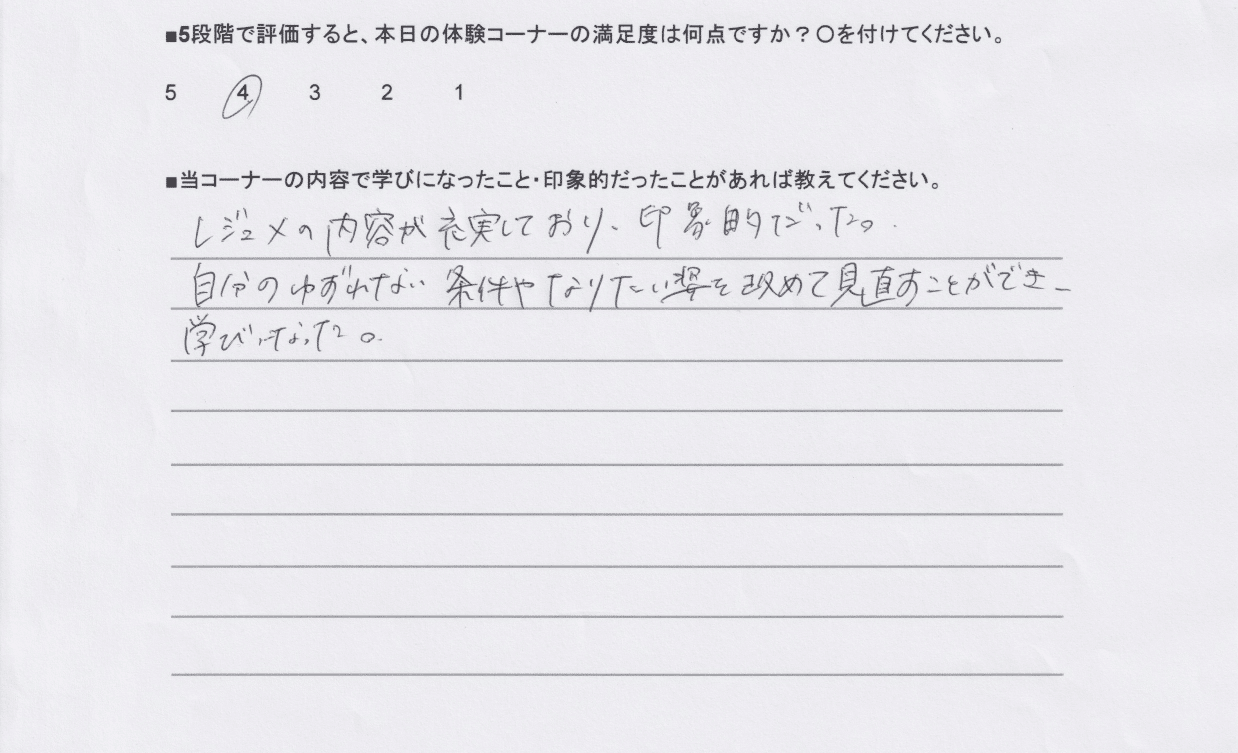 ■5段階で評価すると、本日の体験コーナーの満足度は何点ですか？〇を付けてください。
5 4 3 2 1
■当コーナーの内容で学びになったこと・印象的だったことがあれば教えてください。
レジュメの内容が充実しており、印象的だった。
自分のゆずれない条件やなりたい姿を改めて見直すことができ、
学びになった。